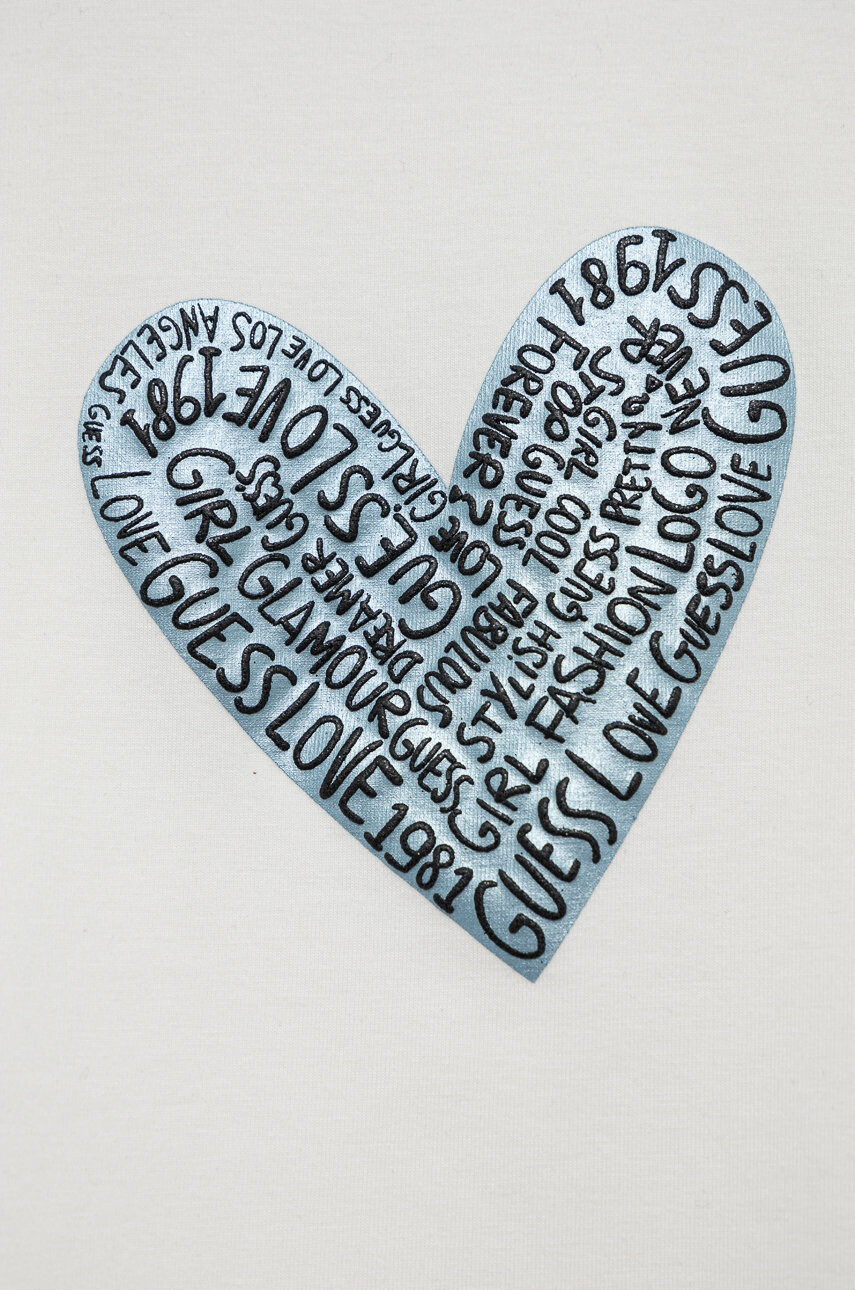 GUESS LOVE LOS ANGELES GUESS LOVE GIRL
LOVE GUESS LOVE 1981
GUESS LOVE 1981
GIRL GLAMOUR GUESS
GUESS DREAMER
LOVE GIRL
FOREVER
STOP GUESS FABULOUS
GIRL COOL STYLISH
NEVER
PRETTY GUESS
NEVER LOGO FASHION GIRL
GUESS LOVE GUESS LOVE GUESS 1981